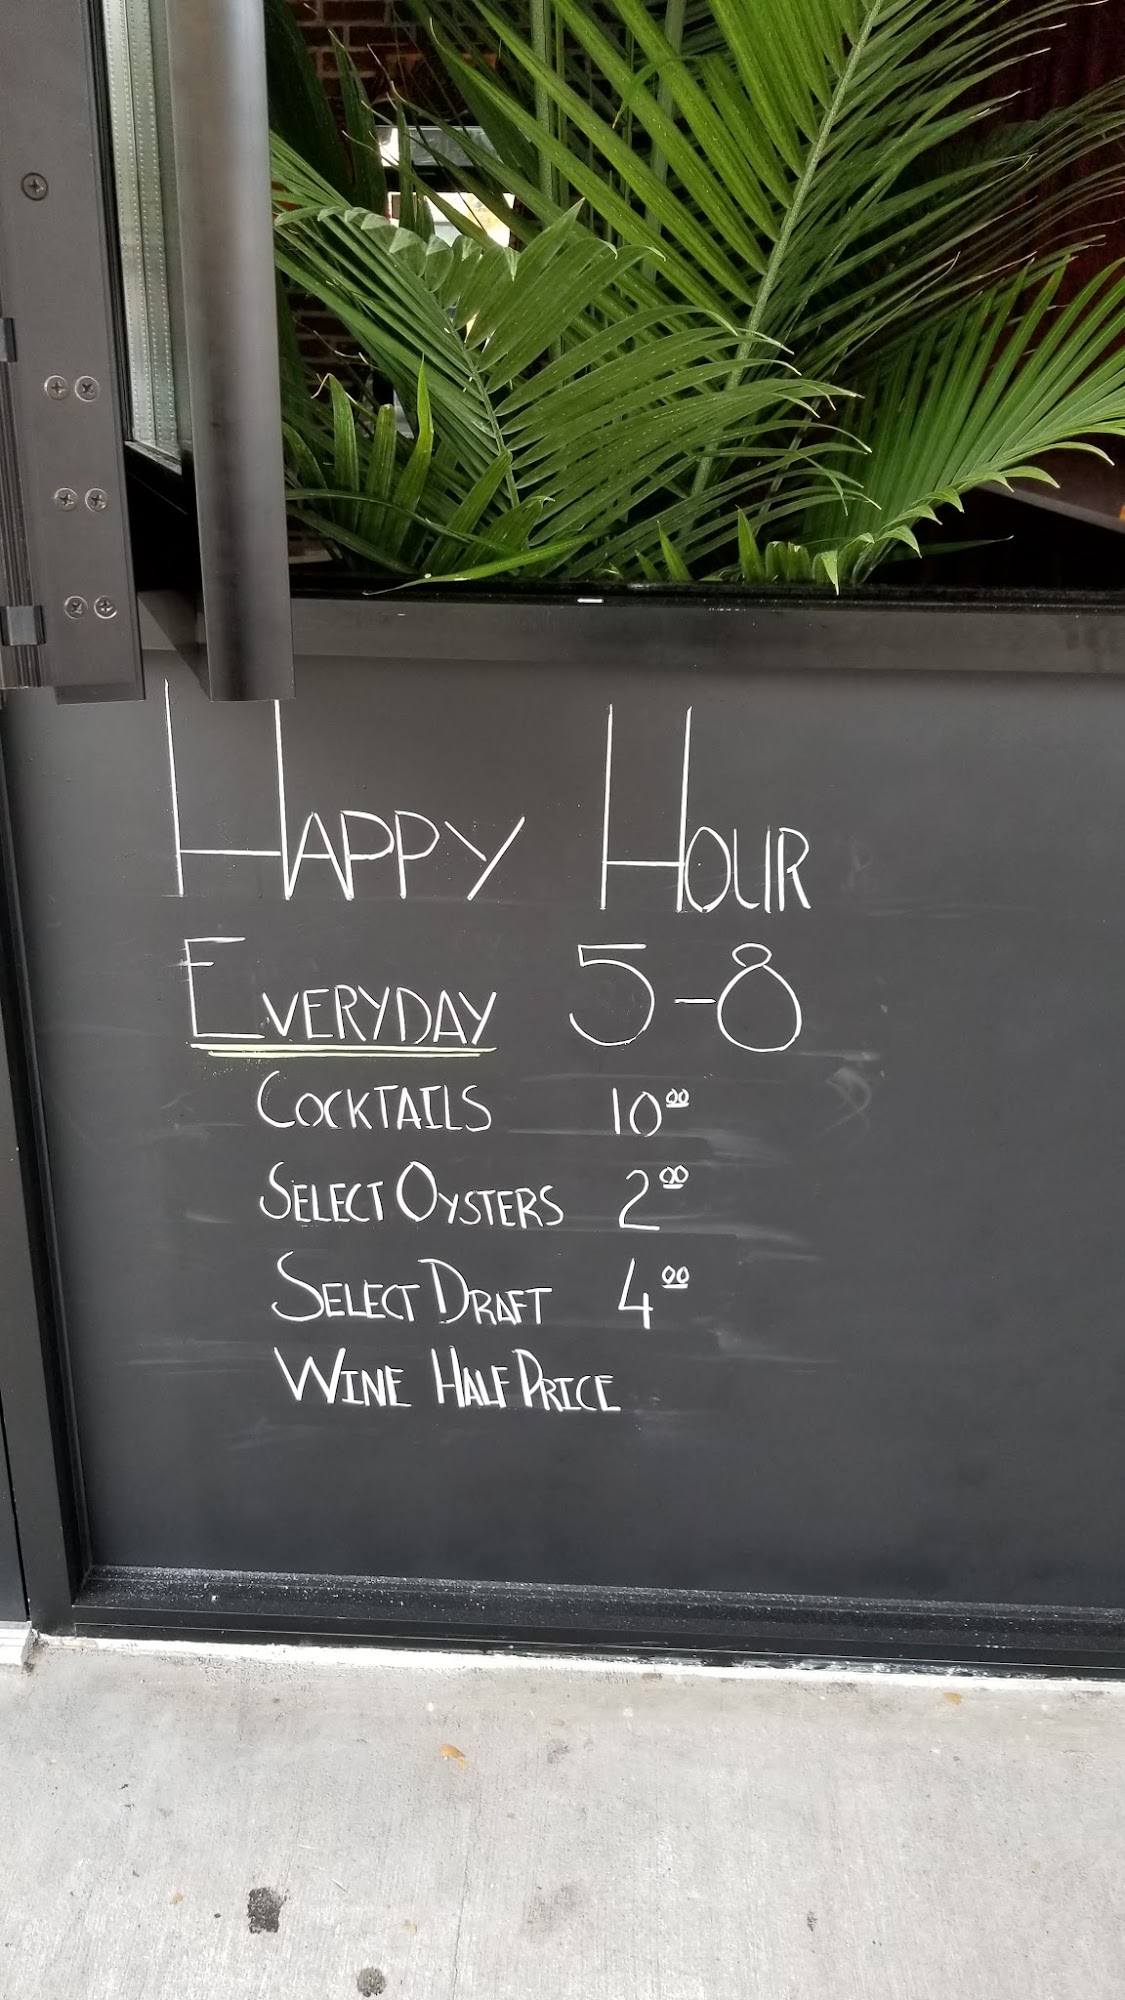 HAPPY HOUR
EVERYDAY 5-8
COCKTAILS 10⁰⁰
SELECT OYSTERS 2⁰⁰
SELECT DRAFT 4⁰⁰
WINE HALF PRICE